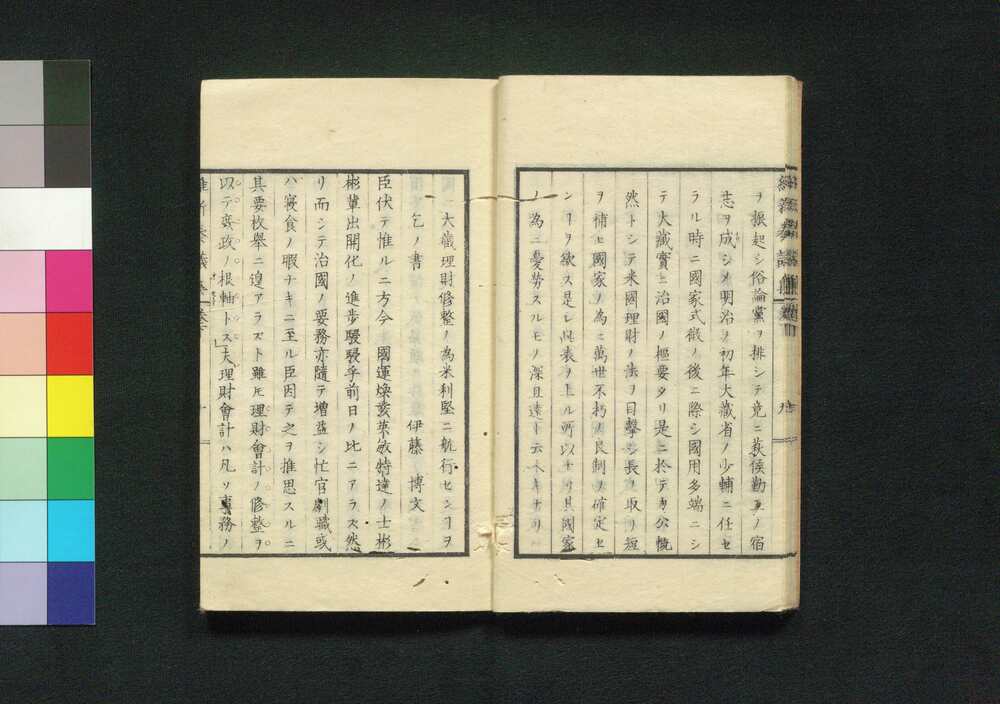 ヲ振起シ俗論黨ヲ排シテ竟ニ萩侯勤王ノ宿
志ヲ成シメ明治ノ初年大藏省ノ少輔ニ任セ
ラル時ニ國家式微ノ後ニ際シ國用多端ニシ
テ大藏實ニ治國ノ樞要タリ是ニ於テカ公慨
然トシテ米國理財ノ法ヲ目擊シ長ヲ取リ短
ヲ補ヒ國家ノ為ニ萬世不朽ノ良制ヲ確定セ
ンヿヲ欲ス是レ此表ヲ上ル所以ナリ其國家
ノ為ニ憂勞スルモノ深且遠ト云ヘキナリ
大藏理財修整ノ為米利堅ニ航行センヿヲ
乞ノ書 伊藤 博文
臣伏テ惟ルニ方今 國運煥發英敏特達ノ士彬
彬輩出開化ノ進步駸駸乎前日ノ比ニアラス然
リ而シテ治國ノ要務亦隨テ增益シ忙官劇職或
ハ寢食ノ暇ナキニ至ル臣因テ之ヲ推思スルニ
其要枚舉ニ遑アラスト雖モ理財會計ノ修整ヲ
以テ妾政ノ根軸トス」夫理財會計ハ凡ソ事務ノ